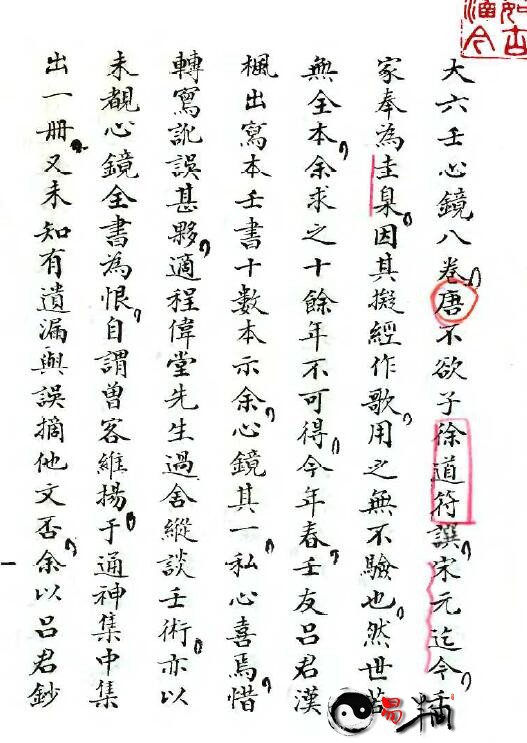 大六壬心鏡八卷唐不欲子徐道符譔宋元迄今壬
家奉為圭臬因其擬經作歌用之無不驗也然世苦
無全本余求之十餘年不可得今年春壬友呂君漢
楓出寫本壬書十數本示余心鏡其一私心喜焉惜
轉寫訛誤甚夥適程偉堂先生過舍縱談壬術亦以
未覩心鏡全書為恨自謂曾客維揚于通神集中集
出一冊又未知有遺漏與誤摘他文否余以呂君鈔
一
易